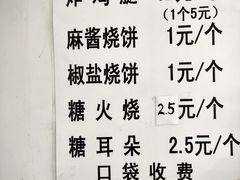 炸鸡腿
(1个5元)
麻酱烧饼 1元/个
椒盐烧饼 1元/个
糖火烧 2.5元/个
糖耳朵 2.5元/个
口袋收费